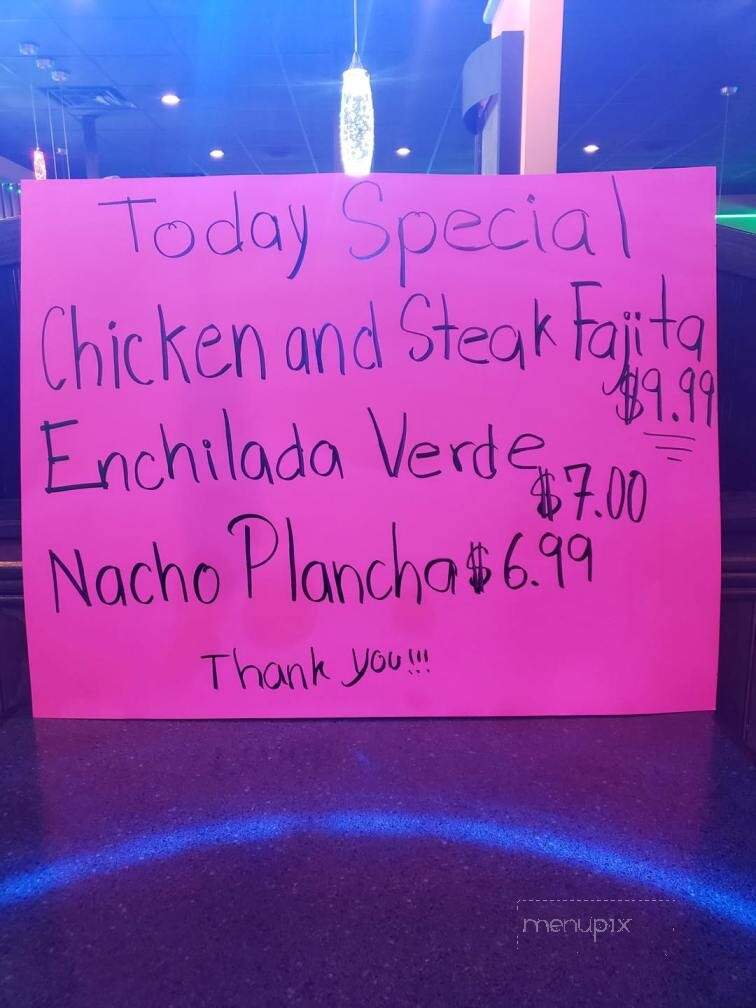 Today Special
Chicken and Steak Fajita
$9.99
Enchilada Verde
$7.00
Nacho Plancha $6.99
Thank you!!!
menupix